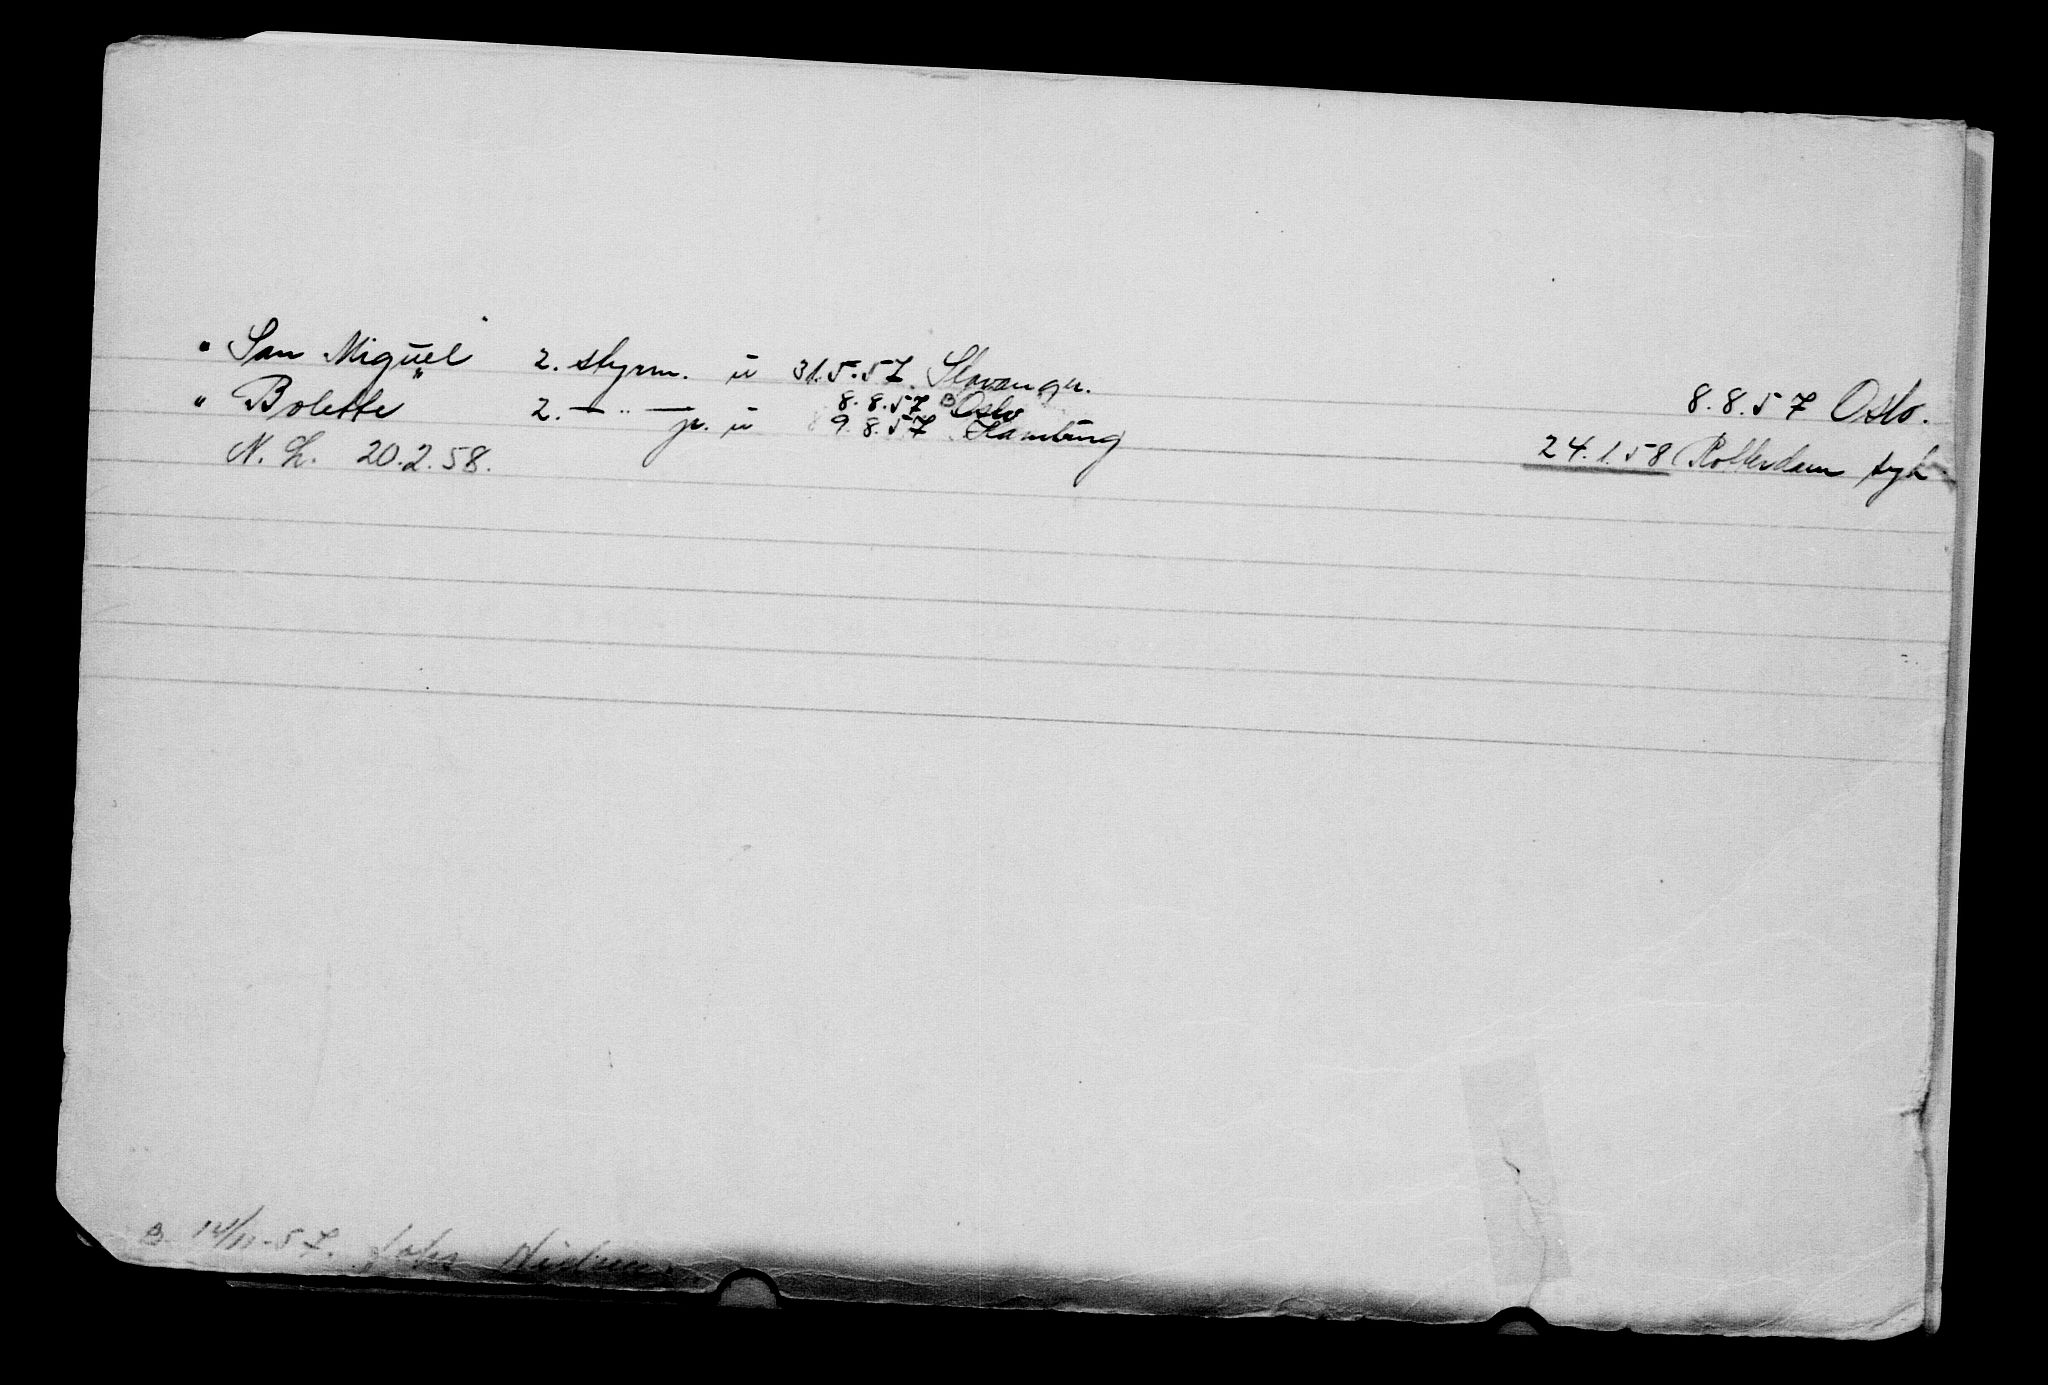 " San Miguel " 2. styrm. u 31.5.57. Stavanger. 8.8.57 Oslo.
8.8.57 Oslo
" Bolette " 2. — " — jr. u 9.8.57 Hamburg 24.1.58 Rotterdam syk.
N. L. 20.2.58.
B 14/11-57. Johs